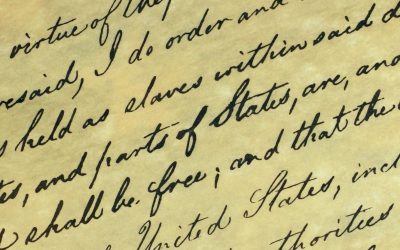 virtue of the
resaid, I do order and
s held as slaves within said d
tes, and parts of States, are, and
d shall be free; and that the
United States, incl
authorities